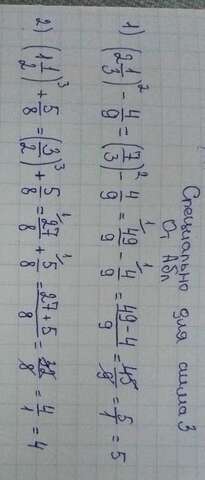 Специально для алмаз
От Абл
1) (2 1/3)² - 4/9 = (7/3)² - 4/9 = 49/9 - 4/9 = 49-4/9 = 45/9 = 5/1 = 5
2) (1 1/2)³ + 5/8 = (3/2)³ + 5/8 = 27/8 + 5/8 = 27+5/8 = 32/8 = 4/1 = 4